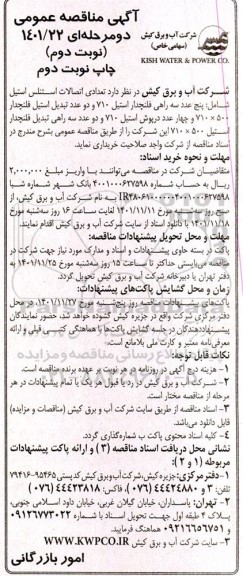 آگهی مناقصه عمومی
دومرحله‌ای ۱۴۰۱/۲۲
(نوبت دوم)
چاپ نوبت دوم
شرکت آب و برق کیش
(سهامی خاص)
KISH WATER & POWER CO.
شرکت آب و برق کیش در نظر دارد تعدادی اتصالات استنلس استیل
شامل: پنج عدد سه راهی فلنجدار استیل ۷۱۰ و دو عدد تبدیل استیل فلنجدار
۵۰۰ × ۷۱۰ و چهار عدد درپوش استیل ۷۱۰ و دو عدد سه راهی تبدیل فلنجدار
استیل ۵۰۰ × ۷۱۰ این شرکت را از طریق مناقصه عمومی بشرح مندرج در
اسناد مناقصه از شرکت واجد صلاحیت خریداری نماید.
مهلت و نحوه خرید اسناد:
متقاضیان شرکت در مناقصه می‌توانند با واریز مبلغ ۲,۰۰۰,۰۰۰
ریال به حساب شماره ۴۰۰۱۰۰۰۶۳۷۵۹۸ بانک
به نام شرکت آب و برق کیش، از
تاریخ ۱۴۰۱/۱۱/۱۱ لغایت ساعت ۱۶ روز سه‌شنبه مورخ
۱۴۰۱/۱۱/۱۸ با دانلود اسناد از سایت شرکت آب و برق کیش اقدام نمایند.
مهلت و محل تحویل پیشنهادات مناقصه:
پاکت در بسته حاوی پیشنهادات و اسناد و مدارک مورد نیاز جهت شرکت در
مناقصه می‌بایستی حداکثر تا ساعت ۱۵ روز سه‌شنبه مورخ ۱۴۰۱/۱۱/۲۵ به
دفتر تهران یا دبیرخانه شرکت آب و برق کیش تحویل گردد.
زمان و محل گشایش پاکت‌های پیشنهادات:
پاکت‌های پیشنهادات مناقصه روز پنج‌شنبه مورخ ۱۴۰۱/۱۱/۲۷ در محل
دفتر مرکزی شرکت واقع در جزیره کیش گشوده خواهد شد، حضور نمایندگان
پیشنهاددهندگان در جلسه گشایش پاکت‌ها با هماهنگی کتبی قبلی و ارائه
معرفی‌نامه معتبر و کارت ملی بلامانع است.
نکات قابل توجه:
۱- هزینه درج آگهی در روزنامه در هر نوبت بر عهده برنده مناقصه است.
۲- شرکت آب و برق کیش در رد یا قبول هر یک یا تمام پیشنهادات در هر
مرحله از مناقصه مختار است.
۳- اسناد مناقصه از طریق سایت شرکت آب و برق کیش (مناقصات و مزایده)
قابل دانلود می‌باشد.
۴- کلیه اسناد محتوی پاکت ب شماره‌گذاری گردد.
نشانی محل دریافت اسناد مناقصه (۳) و ارائه پاکت پیشنهادات
مربوطه (۱ و ۲):
۱- دفتر مرکزی: جزیره کیش، شرکت آب و برق کیش کدپستی ۹۵۴۶۵-۷۹۴۱۶
تلفن: ۳ و ۴۴۴۲۴۸۸۰ (۰۷۶) فاکس: ۴۴۴۲۳۸۱۸ (۰۷۶)
۲- تهران: پاسداران، خیابان گیلان غربی، خیابان داود اسلامی جنوبی،
پلاک ۴ طبقه اول جهت تحویل اسناد با شماره ۰۹۱۲۶۷۷۳۰۲۲
و ۰۹۲۱۶۶۵۶۷۵۱ هماهنگ فرمایید.
۳- سایت شرکت آب و برق کیش WWW.KWPCO.IR
امور بازرگانی